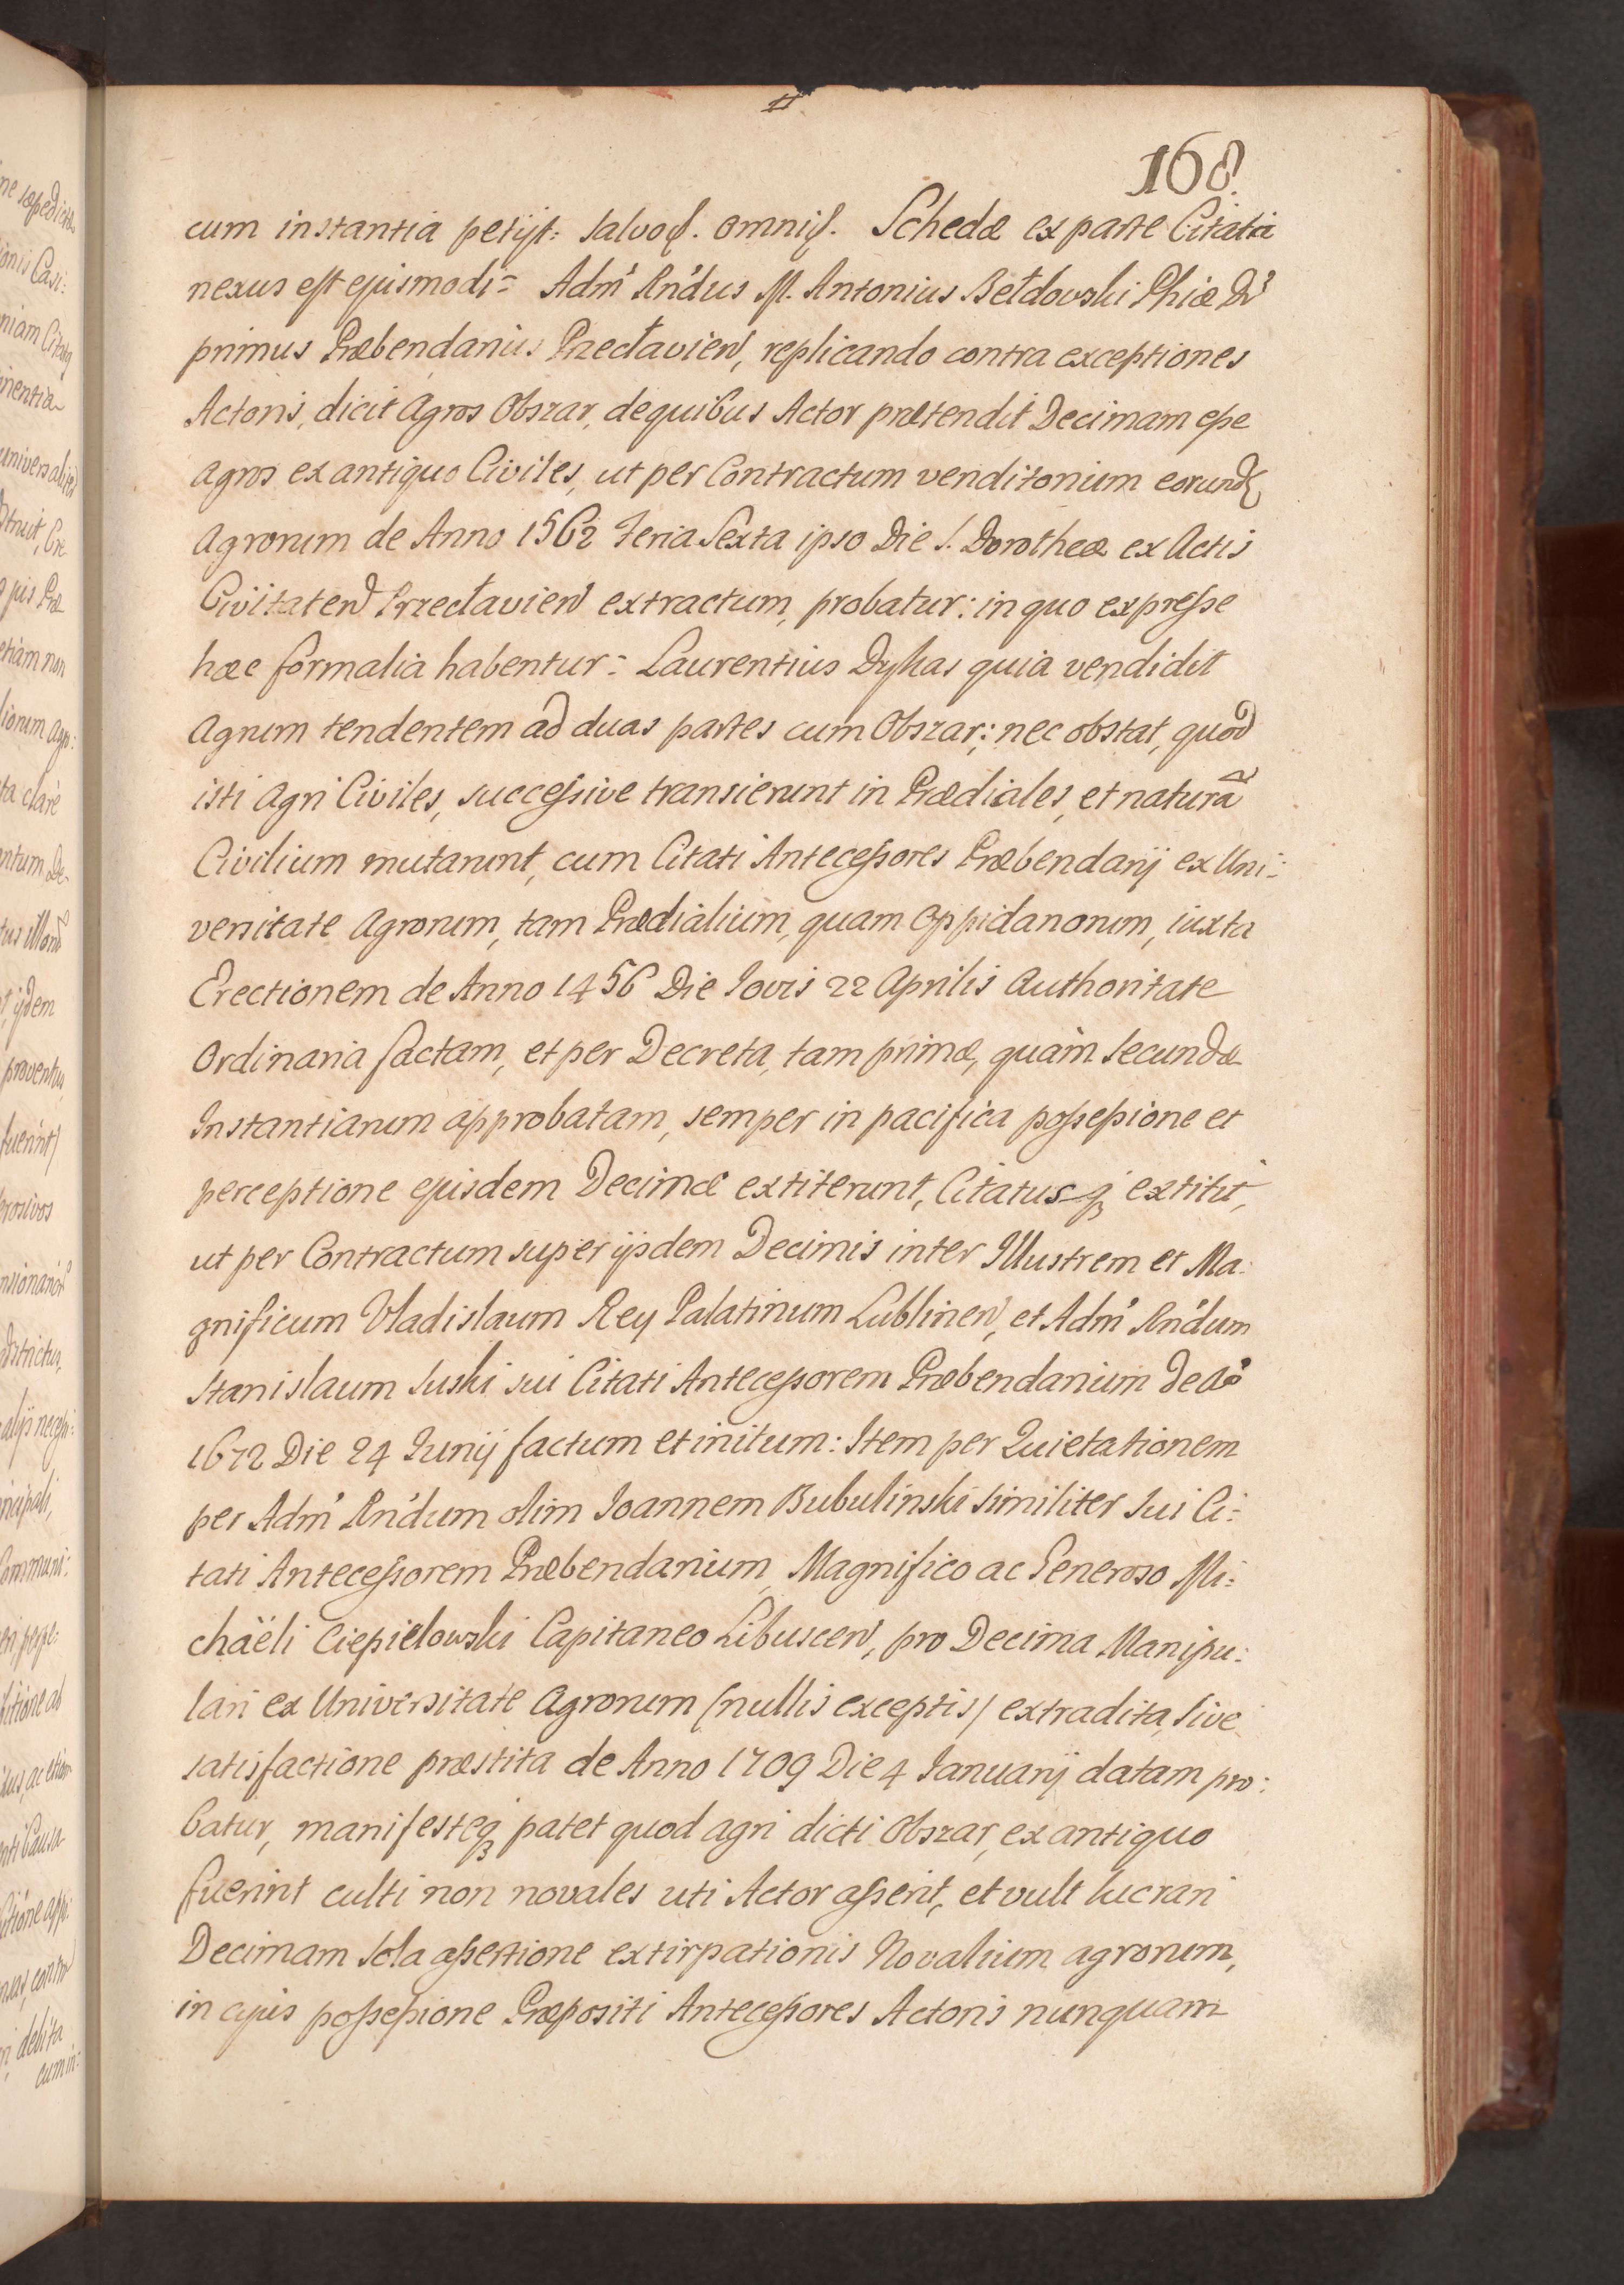 168.
cum instantia petijt: salvoq. omniq. Schedæ ex parte Citati
nexus est ejusmodi= Adm' Rn'dus M. Antonius Bełdowski Phiæ Dr'
primus Præbendarius Przecłavien, replicando contra exceptiones
Actoris, dicit Agros Obszar, de quibus Actor prætendit Decimam esse
Agros ex antiquo Civiles, ut per Contractum venditorium eorund
Agrorum de Anno 1562 Feria Sexta ipso Die S. Dorotheæ ex Actis
Civitaten Przecłavien extractum, probatur: in quo expresse
hæc formalia habentur: Laurentius Dykas quia vendidit
Agrum tendentem ad duas partes cum Obszar: nec obstat, quod
isti Agri Civiles, successive transierunt in Prædiales, et naturã
Civilium mutarunt, cum Citati Antecessores Præbendarij ex Uni=
versitate Agrorum, tam Prædialium, quam Oppidanorum, iuxta
Erectionem de Anno 1456 Die Iovis 22 Aprilis Authoritate
Ordinaria factam, et per Decreta, tam primæ, quàm secundæ
Instantiarum approbatam, semper in pacifica possessione et
perceptione ejusdem Decimæ extiterunt, Citatusq extitit,
ut per Contractum super ijsdem Decimis inter Illustrem et Ma:
gnificum Vladislaum Rey Palatinum Lublinen, et Adm' Rn'dum
Stanislaum Suski sui Citati Antecessorem Præbendarium de Ao
1672 Die 24 Iunij factum et initum: Item per Quietationem
per Adm' Rn'dum olim Ioannem Bubulinski similiter sui Ci=
tati Antecessorem Præbendarium, Magnifico ac Generoso Mi=
chaëli Ciepielowski Capitaneo Libuscen, pro Decima Manipu:
lari ex Universitate Agrorum (nullis exceptis) extradita, sive
satisfactione præstita de Anno 1709 Die 4 Ianuarij datam pro:
batur, manifesteq patet quod agri dicti Obszar, ex antiquo
fuerint culti non novales uti Actor asserit, et vult lucrari
Decimam sola assertione extirpationis Novalium agrorum,
in cujus possessione Præpositi Antecessores Actoris nunquam